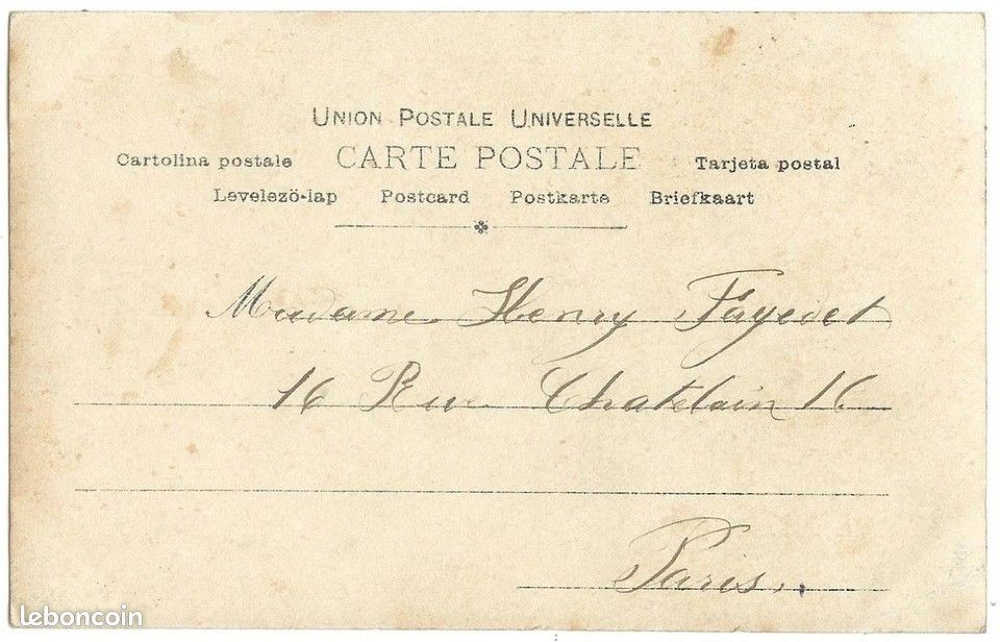 UNION POSTALE UNIVERSELLE
Cartolina postale CARTE POSTALE Tarjeta postal
Levelező-lap Postcard Postkarte Briefkaart
Madame Henry Fayedet
16 Rue Chatelain 16
Paris.
leboncoin